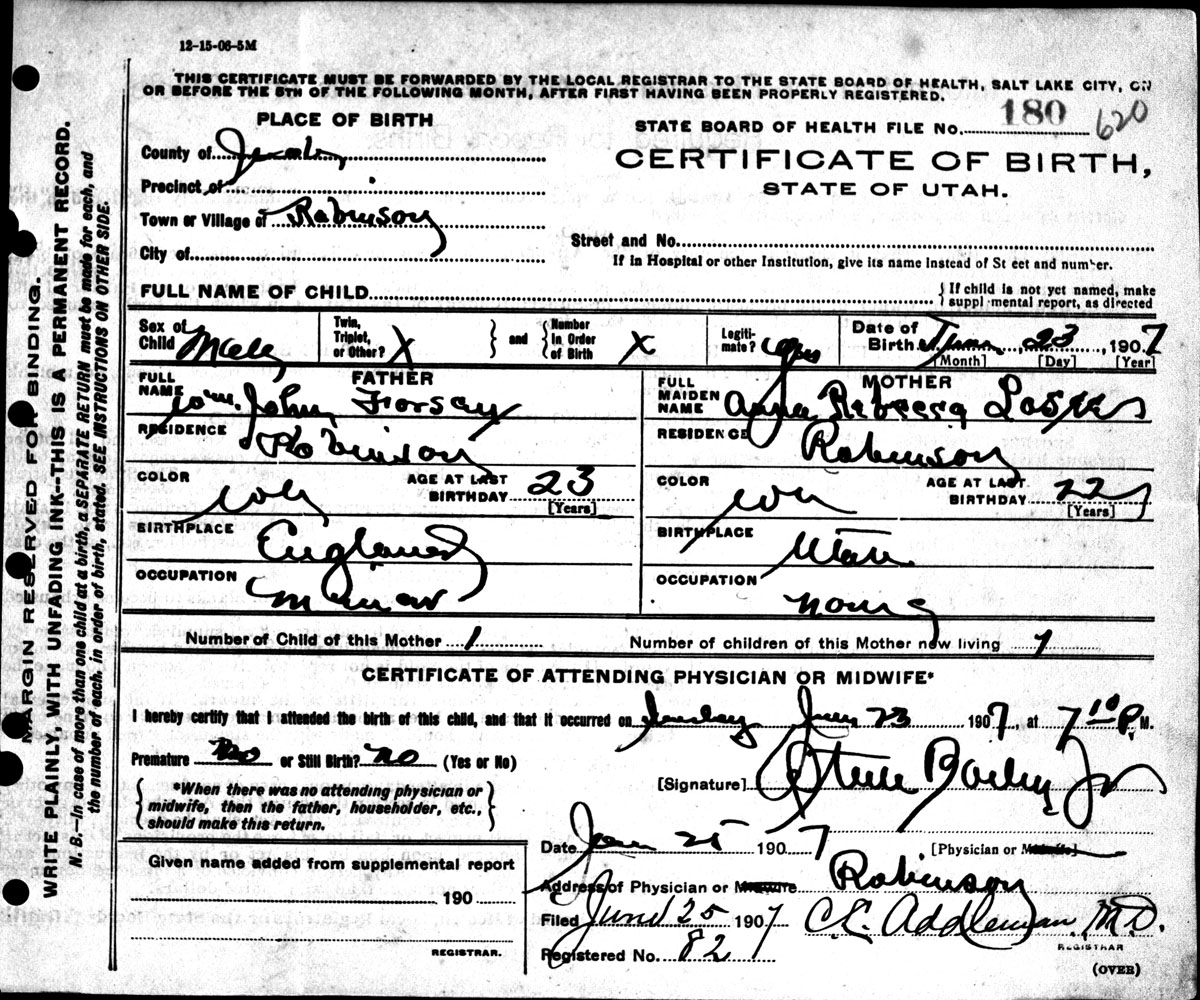 12-15-06-5M
THIS CERTIFICATE MUST BE FORWARDED BY THE LOCAL REGISTRAR TO THE STATE BOARD OF HEALTH, SALT LAKE CITY, ON
OR BEFORE THE 5TH OF THE FOLLOWING MONTH, AFTER FIRST HAVING BEEN PROPERLY REGISTERED.
PLACE OF BIRTH
STATE BOARD OF HEALTH FILE No. 180 620
County of Juab
CERTIFICATE OF BIRTH,
Precinct of
STATE OF UTAH.
Town or Village of Robinson
Street and No.
City of
If in Hospital or other Institution, give its name instead of St eet and number.
FULL NAME OF CHILD
{ If child is not yet named, make
suppl mental report, as directed
Sex of Child Male
Twin, Triplet, or Other? X } and { Number in Order of Birth X
Legitimate? yes
Date of Birth June 23, 1907
[Month] [Day] [Year]
FATHER
FULL NAME Wm. John Forsey
RESIDENCE Robinson
COLOR Wh
AGE AT LAST BIRTHDAY 23
[Years]
BIRTHPLACE England
OCCUPATION Miner
MOTHER
FULL MAIDEN NAME Anna Rebecca
RESIDENCE Robinson
COLOR Wh
AGE AT LAST BIRTHDAY 22
[Years]
BIRTHPLACE Utah
OCCUPATION
Number of Child of this Mother 1
Number of children of this Mother now living 1
CERTIFICATE OF ATTENDING PHYSICIAN OR MIDWIFE*
I hereby certify that I attended the birth of this child, and that it occurred on Sunday June 23 1907, at 7 10 P. M.
Premature No or Still Birth? No (Yes or No)
[Signature] Steele Bailey Jr
{ *When there was no attending physician or
midwife, then the father, householder, etc.,
should make this return. }
Date June 25 1907
[Physician or Midwife]
Given name added from supplemental report
190
REGISTRAR.
Address of Physician or Midwife Robinson
Filed June 25 1907 C.E. Addleman, M.D.
REGISTRAR
Registered No. 82
(OVER)
MARGIN RESERVED FOR BINDING.
WRITE PLAINLY, WITH UNFADING INK--THIS IS A PERMANENT RECORD.
N. B.--In case of more than one child at a birth, a SEPARATE RETURN must be made for each, and
the number of each, in order of birth, stated. SEE INSTRUCTIONS ON OTHER SIDE.